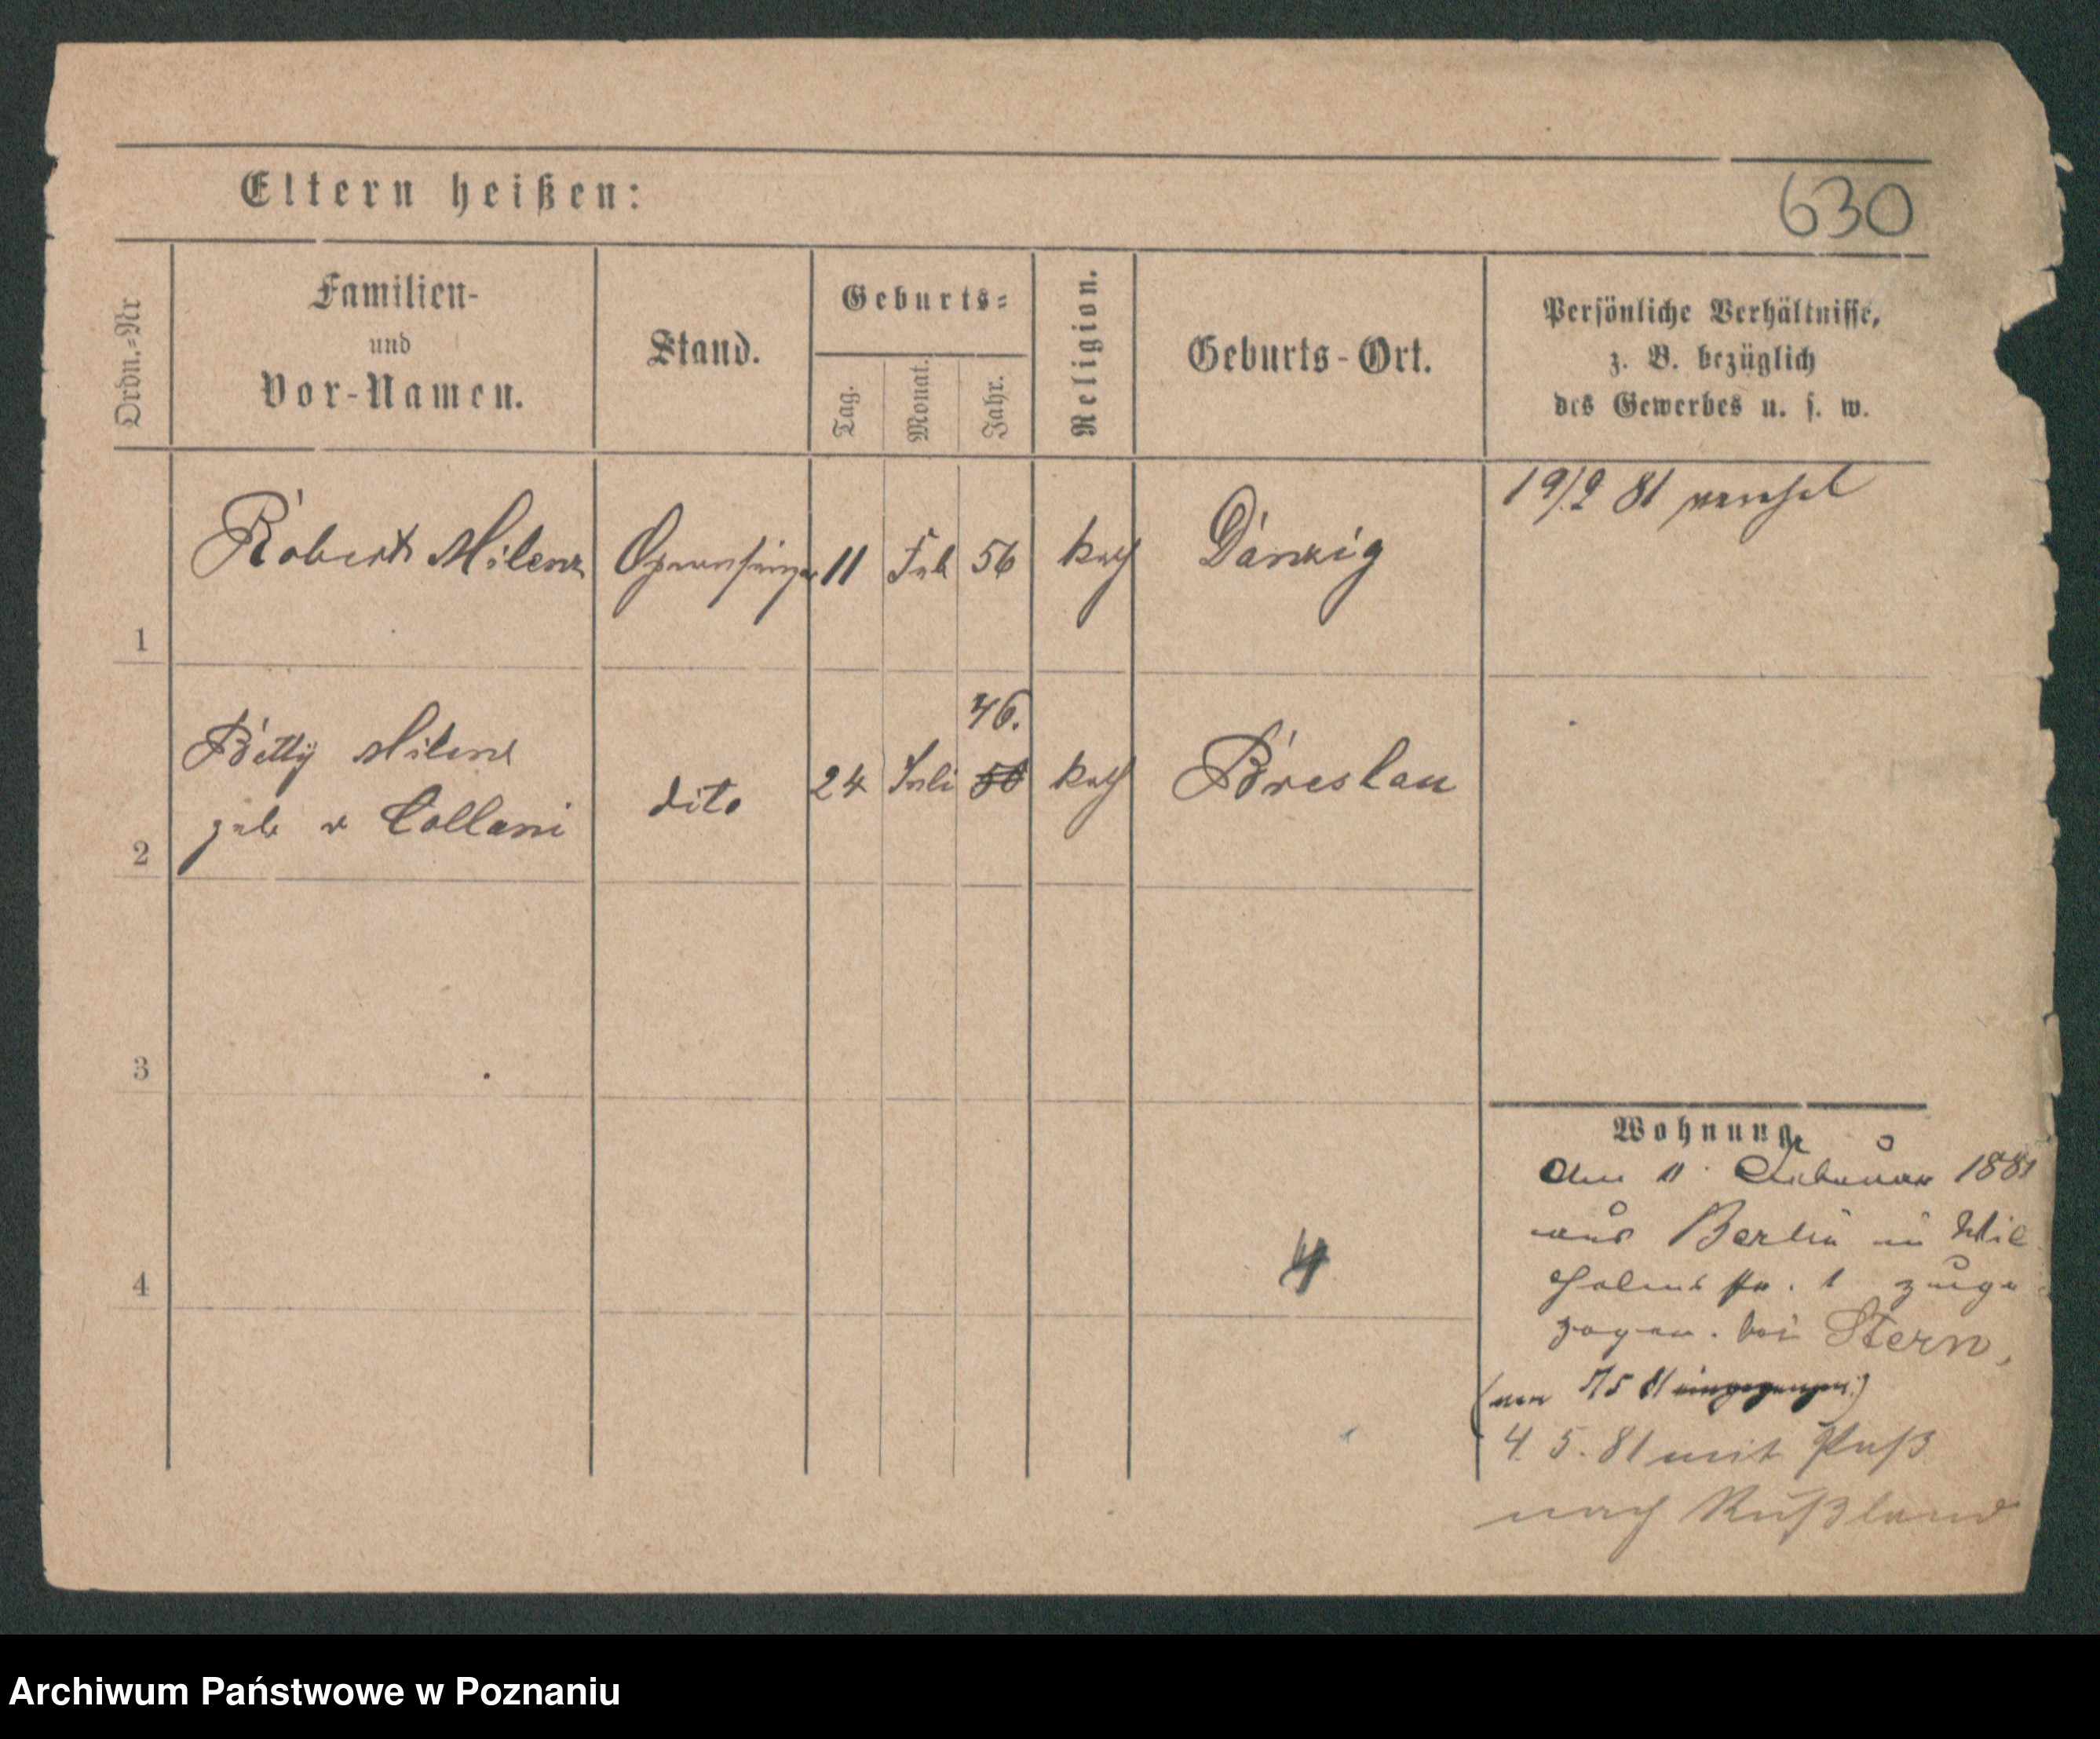 Eltern heißen:
630
Ordn.-Nr
Familien-
und
Vor-Namen.
Stand.
Geburts-
Tag.
Monat.
Jahr.
Religion.
Geburts-Ort.
Persönliche Verhältnisse,
z. B. bezüglich
des Gewerbes u. s. w.
1
Robert Milenz
Opernsänger
11
Feb
56
kath
Danzig
19/2 81
2
Betty Milenz
geb v Collani
dito
24
Juli
46.
50
kath
Breslau
3
4
4
Wohnung
Am 11. Februar 1881
aus Berlin in Wil
helmstr. 1 zuge
zogen. bei Stern,
4. 5. 81 mit Paß
nach Rußland
Archiwum Państwowe w Poznaniu